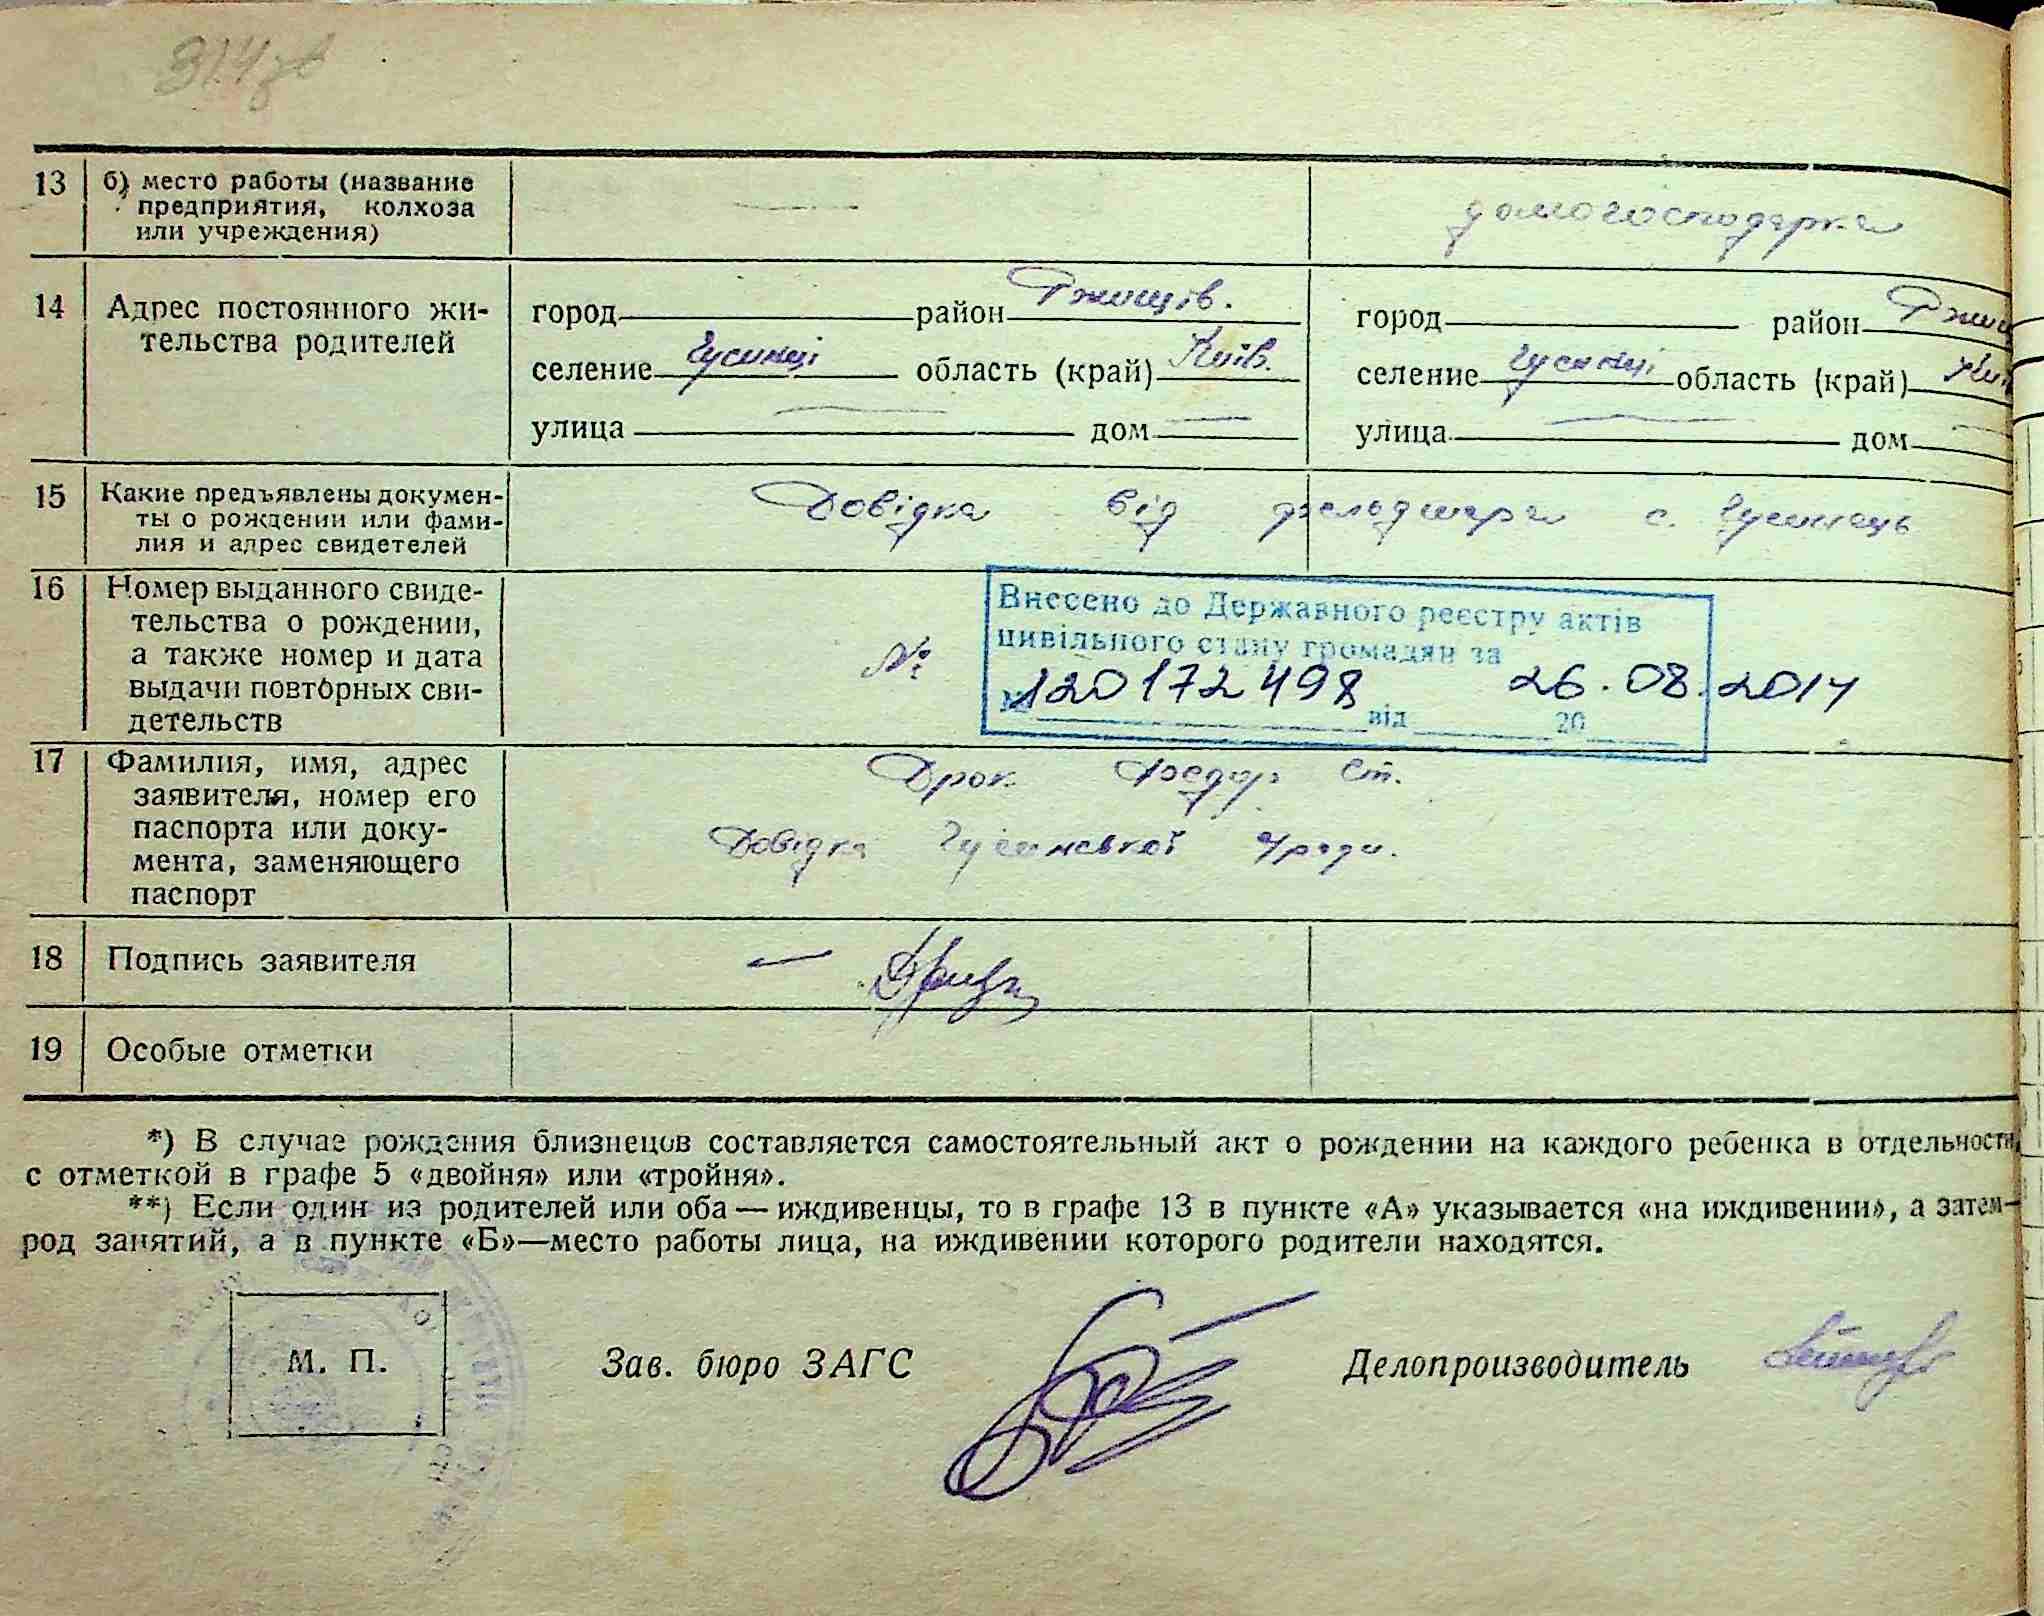 314зв
13 б) место работы (название
предприятия, колхоза
или учреждения)
домогосподарка
14 Адрес постоянного жи-
тельства родителей
город район Ржищів.
селение Гусинці область (край) Київ.
улица дом
город район Ржищ
селение Гусинці область (край) Киї
улица дом
15 Какие предъявлены докумен-
ты о рождении или фами-
лия и адрес свидетелей
Довідка від фельдшера с. Гусинець
16 Номер выданного свиде-
тельства о рождении,
а также номер и дата
выдачи повторных сви-
детельств
№
Внесено до Державного реєстру актів
цивільного стану громадян за
№ 120172498 від 26.08.2014
20
17 Фамилия, имя, адрес
заявителя, номер его
паспорта или доку-
мента, заменяющего
паспорт
Дрок Федор Ст.
Довідка Гусинської с/ради.
18 Подпись заявителя
19 Особые отметки
*) В случае рождения близнецов составляется самостоятельный акт о рождении на каждого ребенка в отдельности,
с отметкой в графе 5 «двойня» или «тройня».
**) Если один из родителей или оба — иждивенцы, то в графе 13 в пункте «А» указывается «на иждивении», а затем—
род занятий, а в пункте «Б»—место работы лица, на иждивении которого родители находятся.
М. П.
Зав. бюро ЗАГС
Делопроизводитель